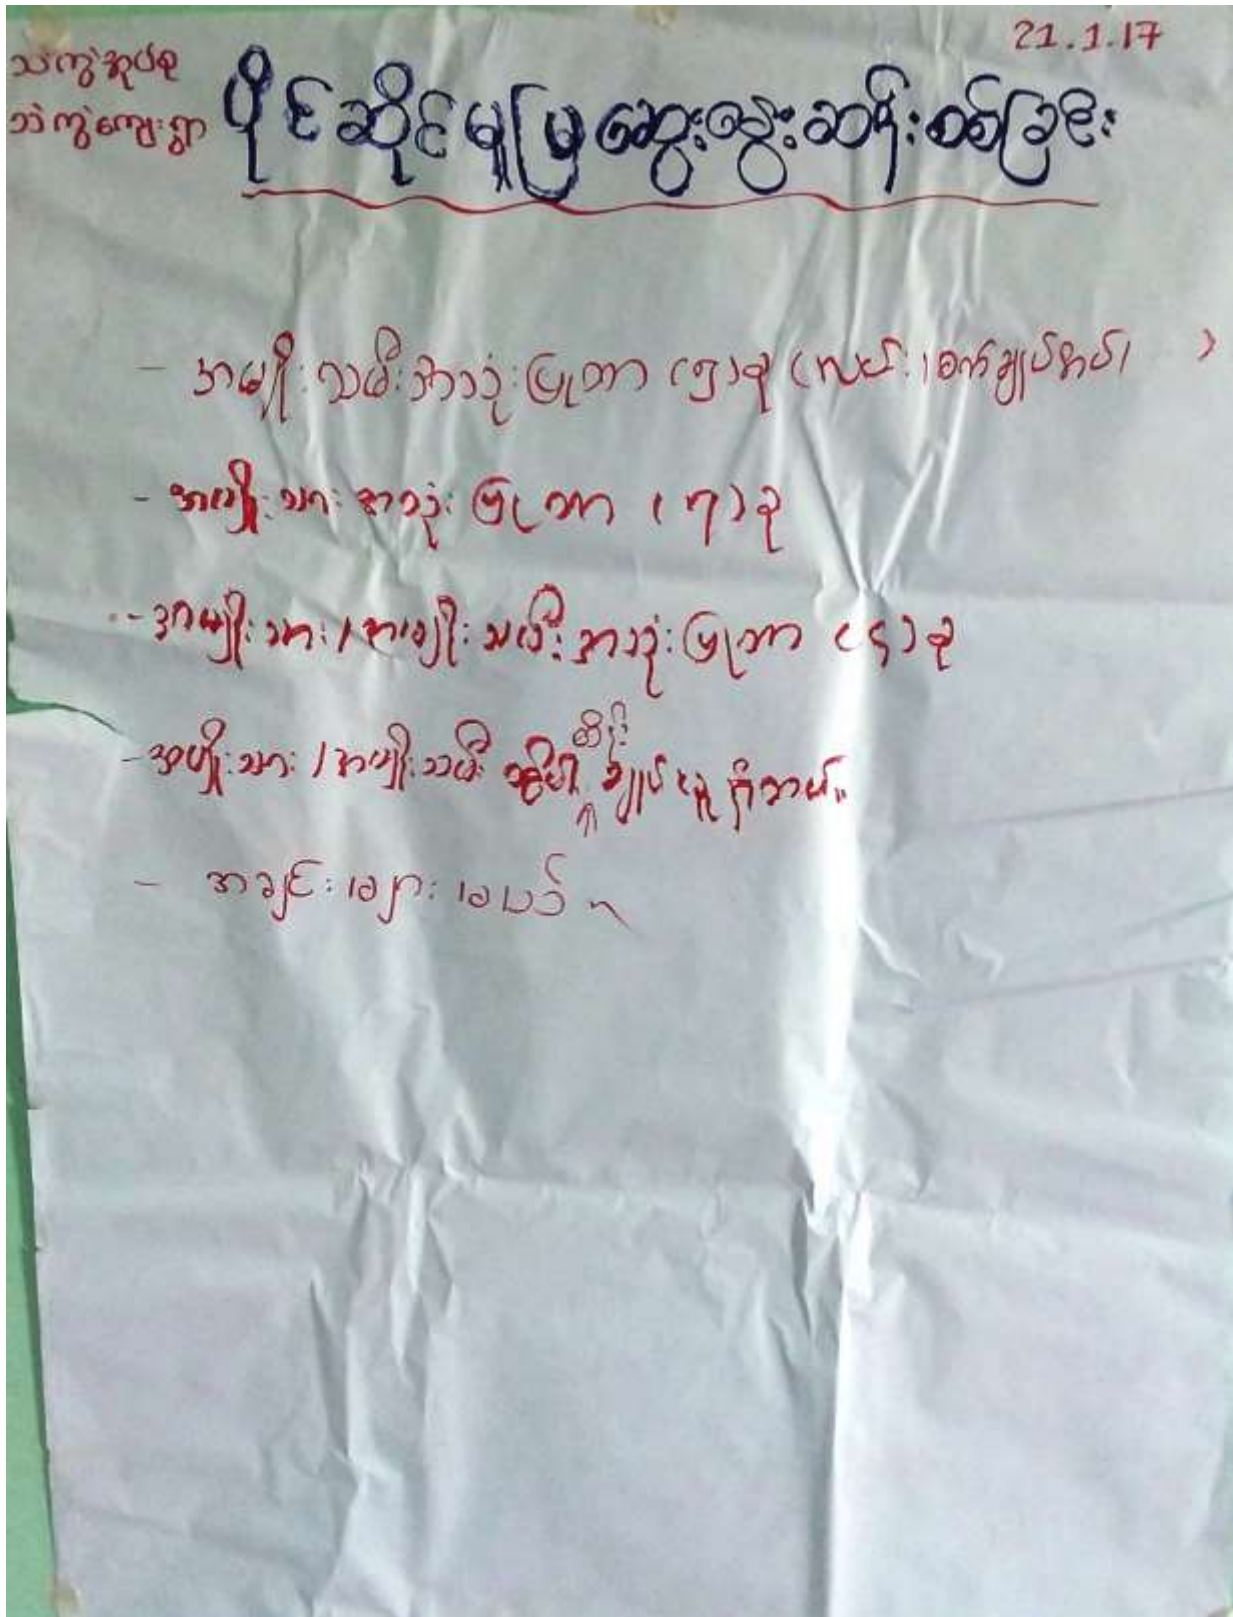 21.1.17
သဲကွဲအုပ်စု
သဲကွဲကျေးရွာ
ပိုင်ဆိုင်မှုမြဆွေးနွေးဆန်းစစ်ခြင်း
- အမျိုးသမီးအသုံးပြုတာ (၅)ခု (လှမ်း၊စက်ချုပ်အပ်၊ )
- အမျိုးသားအသုံးပြုတာ (၇)ခု
- အမျိုးသား/အမျိုးသမီးအသုံးပြုတာ (၄)ခု
- အမျိုးသား/အမျိုးသမီး ထိန်းချုပ်မှုရှိတယ်။
- အချင်း